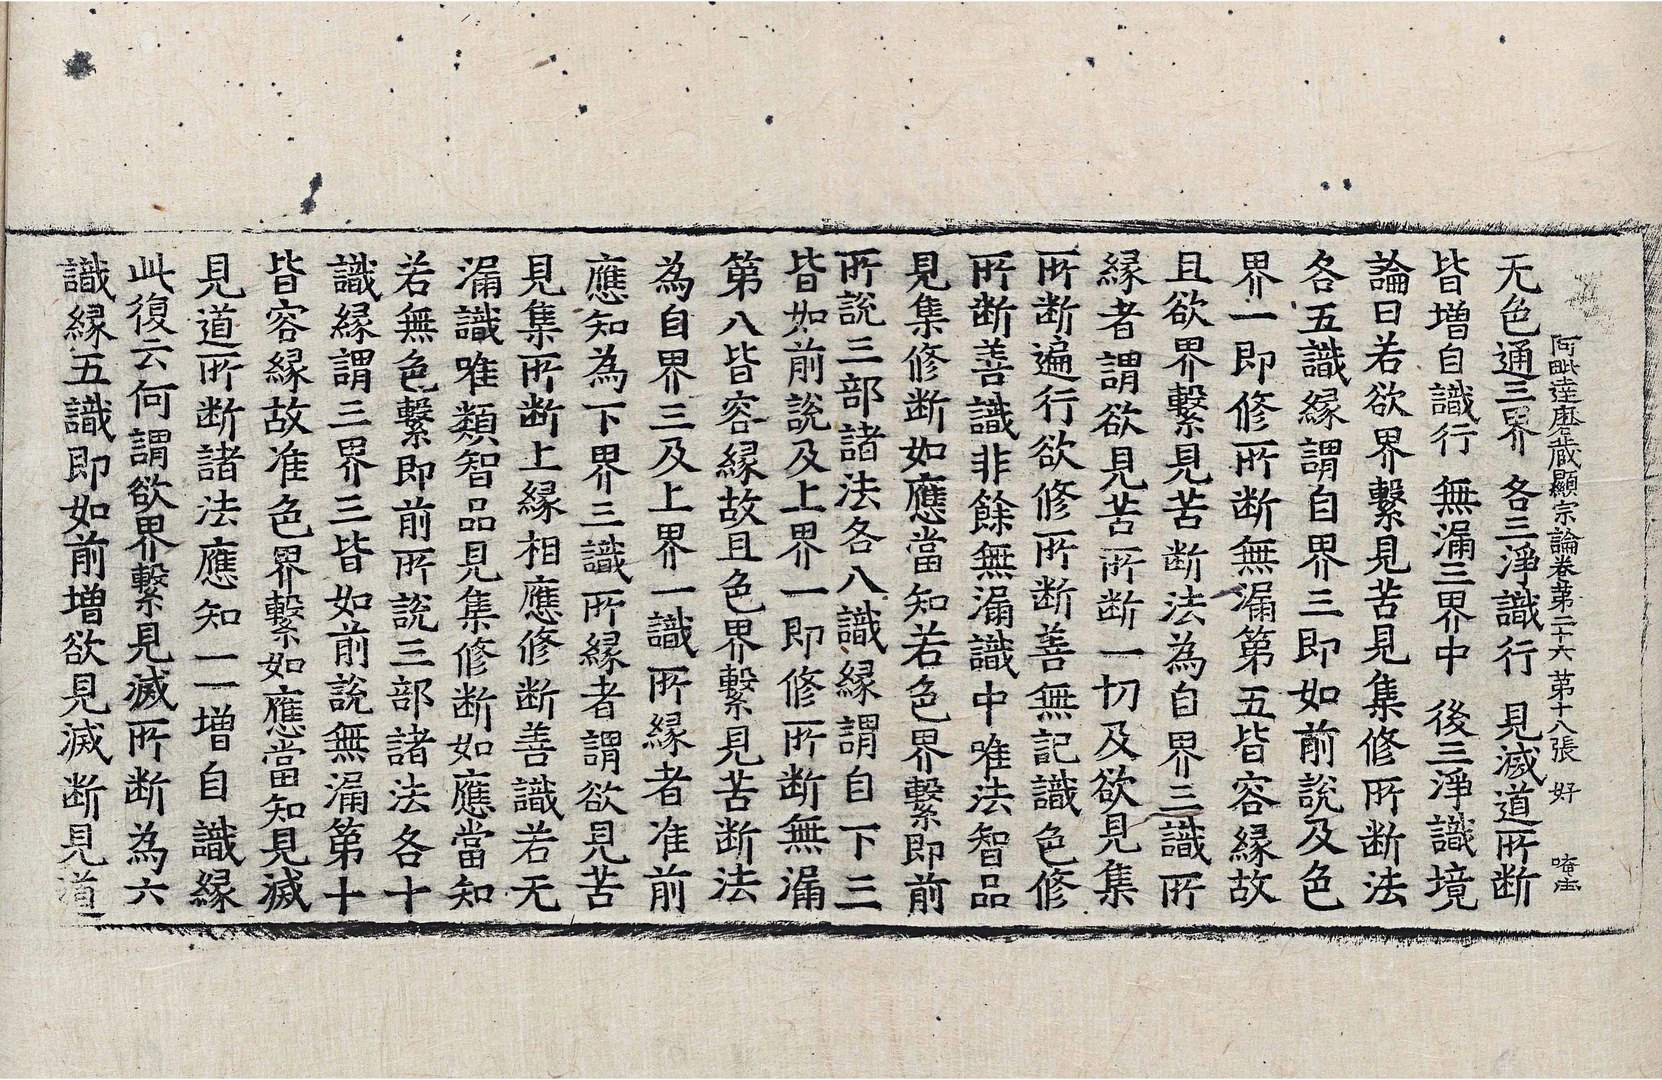 阿毗達磨藏顯宗論卷第二十六 第十八張 好
无色通三界 各三淨識行 見滅道所断
皆增自識行 無漏三界中 後三淨識境
論曰若欲界繫見苦見集修所断法
各五識緣謂自界三即如前說及色
界一即修所断無漏第五皆容緣故
且欲界繫見苦断法為自界三識所
緣者謂欲見苦所断一切及欲見集
所断遍行欲修所断善無記識色修
所断善識非餘無漏識中唯法智品
見集修断如應當知若色界繫即前
所說三部諸法各八識緣謂自下三
皆如前說及上界一即修所断無漏
第八皆容緣故且色界繫見苦断法
為自界三及上界一識所緣者准前
應知為下界三識所緣者謂欲見苦
見集所断上緣相應修断善識若无
漏識唯類智品見集修断如應當知
若無色繫即前所說三部諸法各十
識緣謂三界三皆如前說無漏第十
皆容緣故准色界繫如應當知見滅
見道所断諸法應知一一增自識緣
此復云何謂欲界繫見滅所断為六
識緣五識即如前增欲見滅断見道